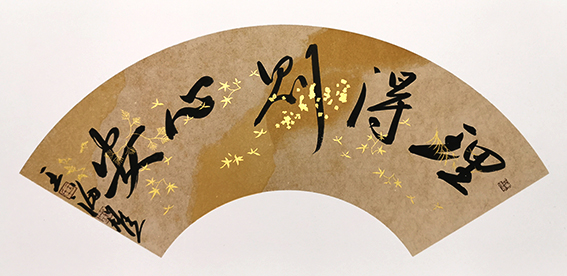 理得則心安